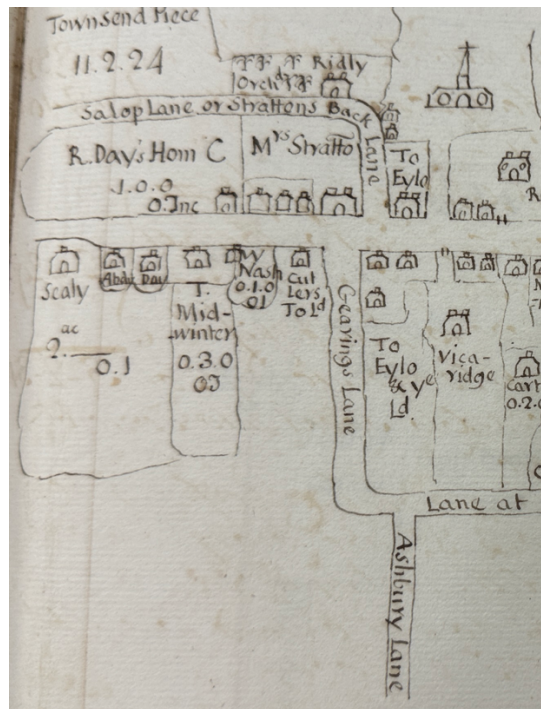 Townsend Piece
11.2.24
Ridly
Orchd
Salop Lane or Strattons Back
Lane
R. Day's Hom C
1.0.0
O.Inc
Mrs Stratto
To
Eylo
R
Scaly
ac
2.
0.1
Abdy
Day
T.
Mid-
winter
0.3.0
OI
W
Nash
0.1.0
OI
Cut
lers
To Ld
Gearings Lane
To
Eylo
& ye
Ld.
Vica-
ridge
Cart
0.2.0
Lane at
Ashbury Lane